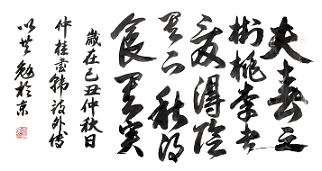 夫春之
樹桃李者
夏得陰
其下秋得
食其实
歲在己丑仲秋日
仲桂書韓詩外傳
以共勉於京